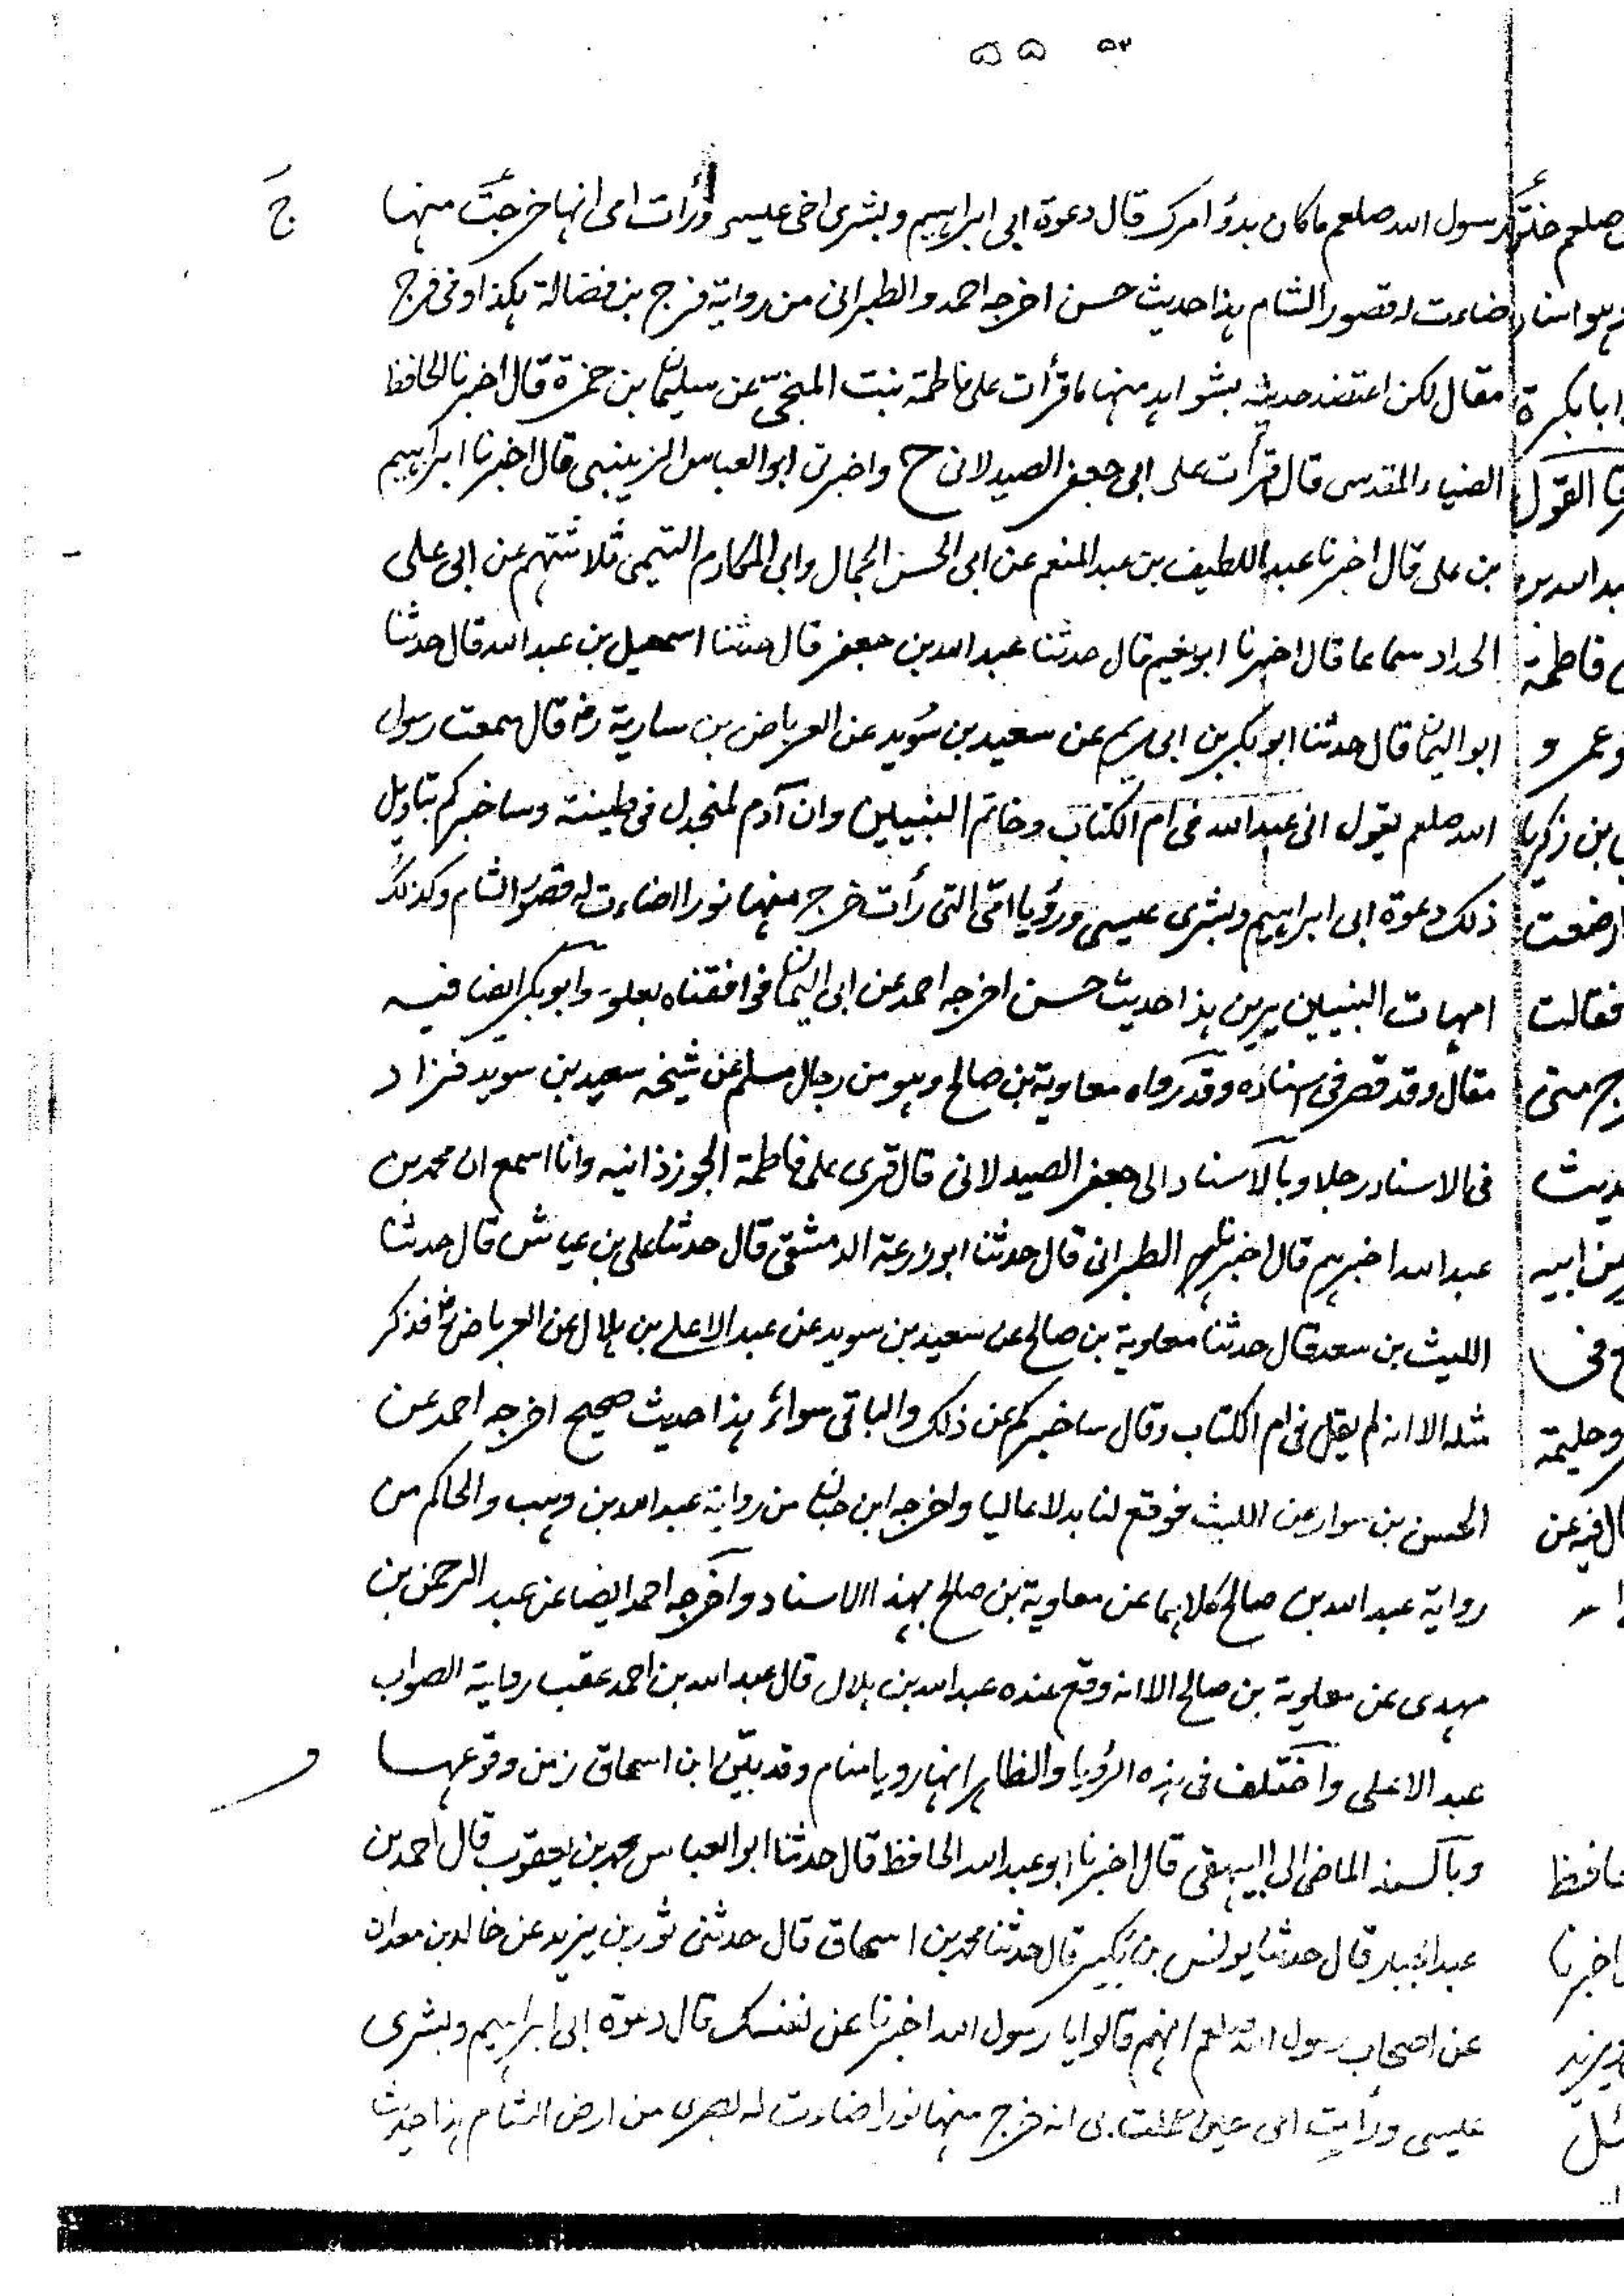 رسول الله صلعم ما كان بدؤ امرك قال دعوة ابي ابراهيم وبشرى اخى عيسى ورأت امى انها خرجت منها
اضاءت له قصور الشام هذا حديث حسن اخرجه احمد والطبرانى من رواية فرج بن فضالة هكذا وفى فرج
مقال لكن اعتضد حديثه بشواهد منها ما قرأت على فاطمة بنت المنجى عن سليمان بن حمزة قال اخبرنا الحافظ
الضياء المقدسى قال قرأت على ابى جعفر الصيدلانى ح واخبرنى ابو العباس الزينبى قال اخبرنا ابراهيم
بن على قال اخبرنا عبد اللطيف بن عبد المنعم عن ابى الحسن الجمال وابى المكارم التيمى ثلاثتهم عن ابى على
الحداد سماعا قال اخبرنا ابو نعيم قال حدثنا عبد الله بن جعفر قال حدثنا اسمعيل بن عبد الله قال حدثنا
ابو اليمان قال حدثنا ابو بكر بن ابى مريم عن سعيد بن سُويد عن العرباض بن سارية رض قال سمعت رسول
الله صلعم يقول انى عبد الله فى ام الكتاب وخاتم النبيين وان آدم لمنجدل فى طينته وساخبركم بتاويل
ذلك دعوة ابى ابراهيم وبشرى عيسى ورؤيا امّى التى رأت خرج منها نورا اضاءت له قصور الشام وكذلك
امهات النبيين يرين هذا حديث حسن اخرجه احمد عن ابى اليمان فوافقناه بعلو وابو بكر ايضا فيه
مقال وقد قصر فى اسناده وقد رواه معاوية بن صالح وهو من رجال مسلم عن شيخه سعيد بن سويد فزاد
فى الاسناد رجلا وبالاسناد الى جعفر الصيدلانى قال قرى على فاطمة الجوزذانيه وانا اسمع ان محمد بن
عبد الله اخبرهم قال اخبرنا الطبرانى قال حدثنا ابو زرعة الدمشقى قال حدثنا على بن عياش قال حدثنا
الليث بن سعد قال حدثنا معاوية بن صالح عن سعيد بن سويد عن عبد الاعلے بن هلال عن العرباض رض فذكر
مثله الا انه لم يقل فى ام الكتاب وقال ساخبركم عن ذلك والباقى سوائر هذا حديث صحيح اخرجه احمد عن
الحسن بن سوار عن الليث فوقع لنا بدلا عاليا واخرجه ابن حبان من رواية عبد الله بن وهب والحاكم من
رواية عبد الله بن صالح كلاهما عن معاوية بن صالح بهذا الاسناد واخرجه احمد ايضا عن عبد الرحمن بن
مهدى عن معاوية بن صالح الا انه وقع عنده عبد الله بن هلال قال عبد الله بن احمد عقب رواية الصواب
عبد الاعلى واختلف فى هذه الرؤيا والظاهر انها رويا منام وقد بيّن ابن اسحاق زمن وقوعها
وبالسند الماضى الى البيهقى قال اخبرنا ابو عبد الله الحافظ قال حدثنا ابو العباس محمد بن يعقوب قال احمد بن
عبد الجبار قال حدثنا يونس بن بُكير قال حدثنا محمد بن اسحاق قال حدثنى ثور بن يزيد عن خالد بن معدان
عن اصحاب رسول الله صلعم انهم قالوا يا رسول الله اخبرنا عن نفسك قال دعوة ابى ابراهيم وبشرى
عيسى ورأيت امى حين حملت بى انه خرج منها نور اضاءت له بصرى من ارض الشام هذا حديث